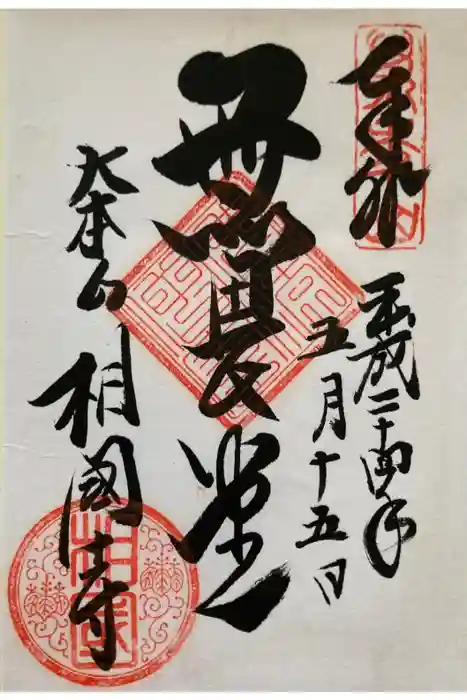 奉拝
平成二十四年
五月十五日
無畏堂
大本山
相國寺